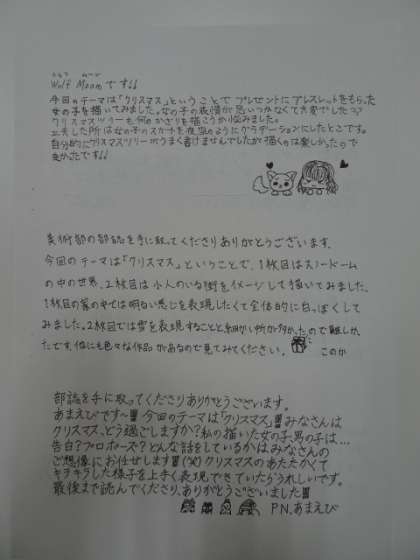 うるふ むーん
Wolf Moonです!!
今回のテーマは「クリスマス」ということで プレゼントにブレスレットをもらった
女の子を描いてみました。女の子の表情が思いつかなくて大変でした
クリスマスツリーも何のかざりを描こうか悩みました。
工夫した所は女の子のスカートを夜空のようにグラデーションにしたとこです。
自分的にクリスマスツリーがうまく書けませんでしたが描くのは楽しかったので
良かったです!!
美術部の部誌を手に取ってくださりありがとうございます。
今回のテーマは「クリスマス」ということで、1枚目はスノードーム
の中の世界、2枚目は小人のいる街をイメージして描いてみました。
1枚目の雪の中では明るい感じを表現したくて全体的に白っぽくして
みました。2枚目では雪を表現することと細かい所が多かったので難しかっ
たです。他にも色々な作品があるので見てみてください。 このか
部誌を手に取ってくださりありがとうございます。
あまえびです〜!! 今回のテーマは「クリスマス」!! みなさんは
クリスマス、どう過ごしますか?私の描いた女の子、男の子は…
告白?プロポーズ?どんな話をしているかはみなさんの
ご想像にお任せします!!(笑)クリスマスのあたたかくて
キラキラした様子を上手く表現できていたらうれしいです。
最後まで読んでくださり、ありがとうございました!!
P.N.あまえび